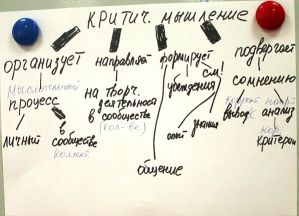 КРИТИЧ. МЫШЛЕНИЕ
организует
направляет
формирует
подвергает
мыслительный
процесс
на творч.
деятельность
в сообществе
(кол-ве)
см.
убеждения
сомнению
личный
в
сообществе
опыт
знания
вывод
анализ
критерии
общение